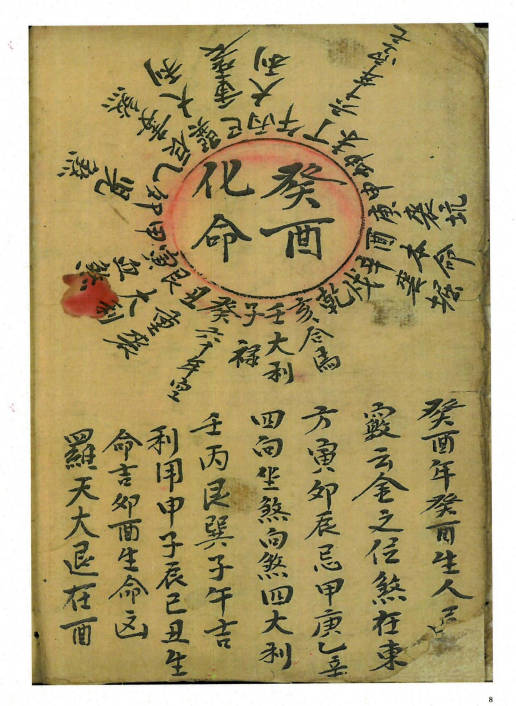 癸酉
化命
壬大利
子祿
癸六十年空
丑
艮大利
寅血煞
甲
卯
乙
辰
巽大利
巳重喪
丙
午大利
丁
未
坤
申
庚
酉本命
辛
戌
乾
亥
癸酉年癸酉生人
云金之位煞在東
方寅卯辰忌甲庚乙辛
四向坐煞向煞四大利
壬丙艮巽子午吉
利用甲子辰巳丑生
命吉卯酉生命凶
羅天大退在酉
8